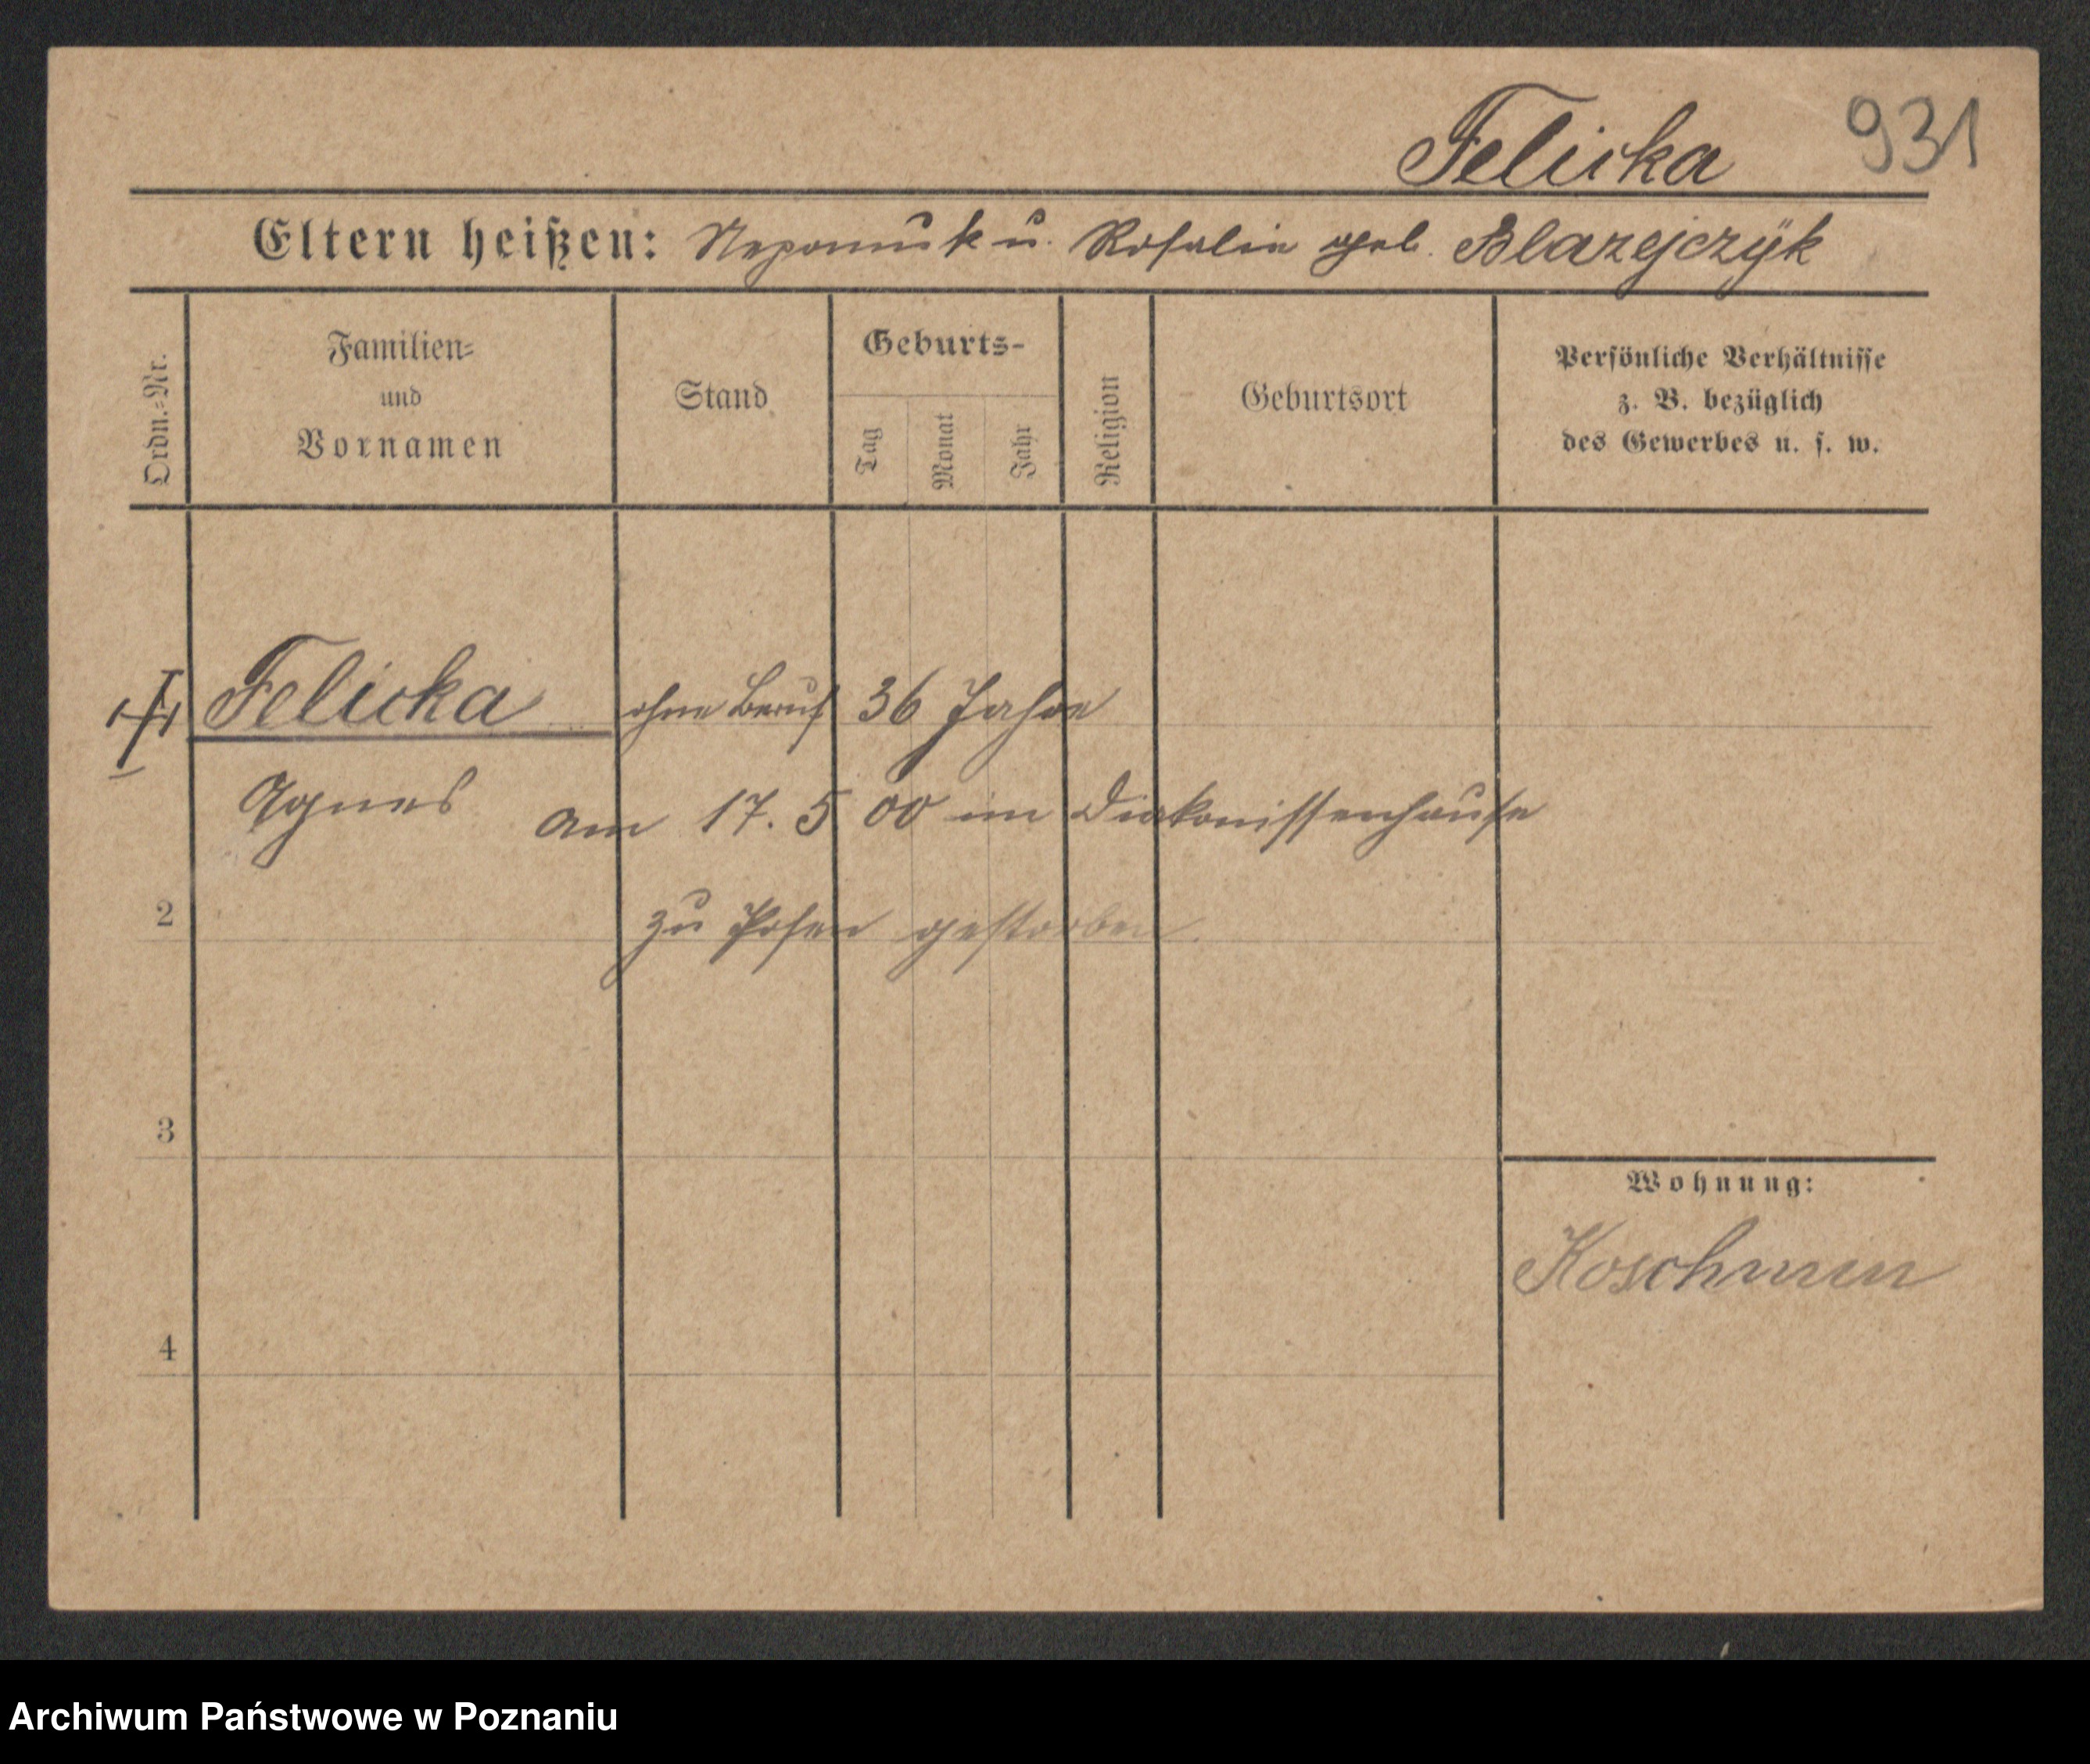 Felicka 931
Eltern heißen: Nepomuk u. Rosalie geb. Blazejczyk
Ordn.-Nr.
Familien-
und
Vornamen
Stand
Geburts-
Tag
Monat
Jahr
Religion
Geburtsort
Persönliche Verhältnisse
z. B. bezüglich
des Gewerbes u. s. w.
Felicka ohne Beruf 36 Jahre
Agnes am 17. 5 00 im Diakonissenhause
2 zu Posen gestorben.
3
Wohnung:
Koschmin
4
Archiwum Państwowe w Poznaniu